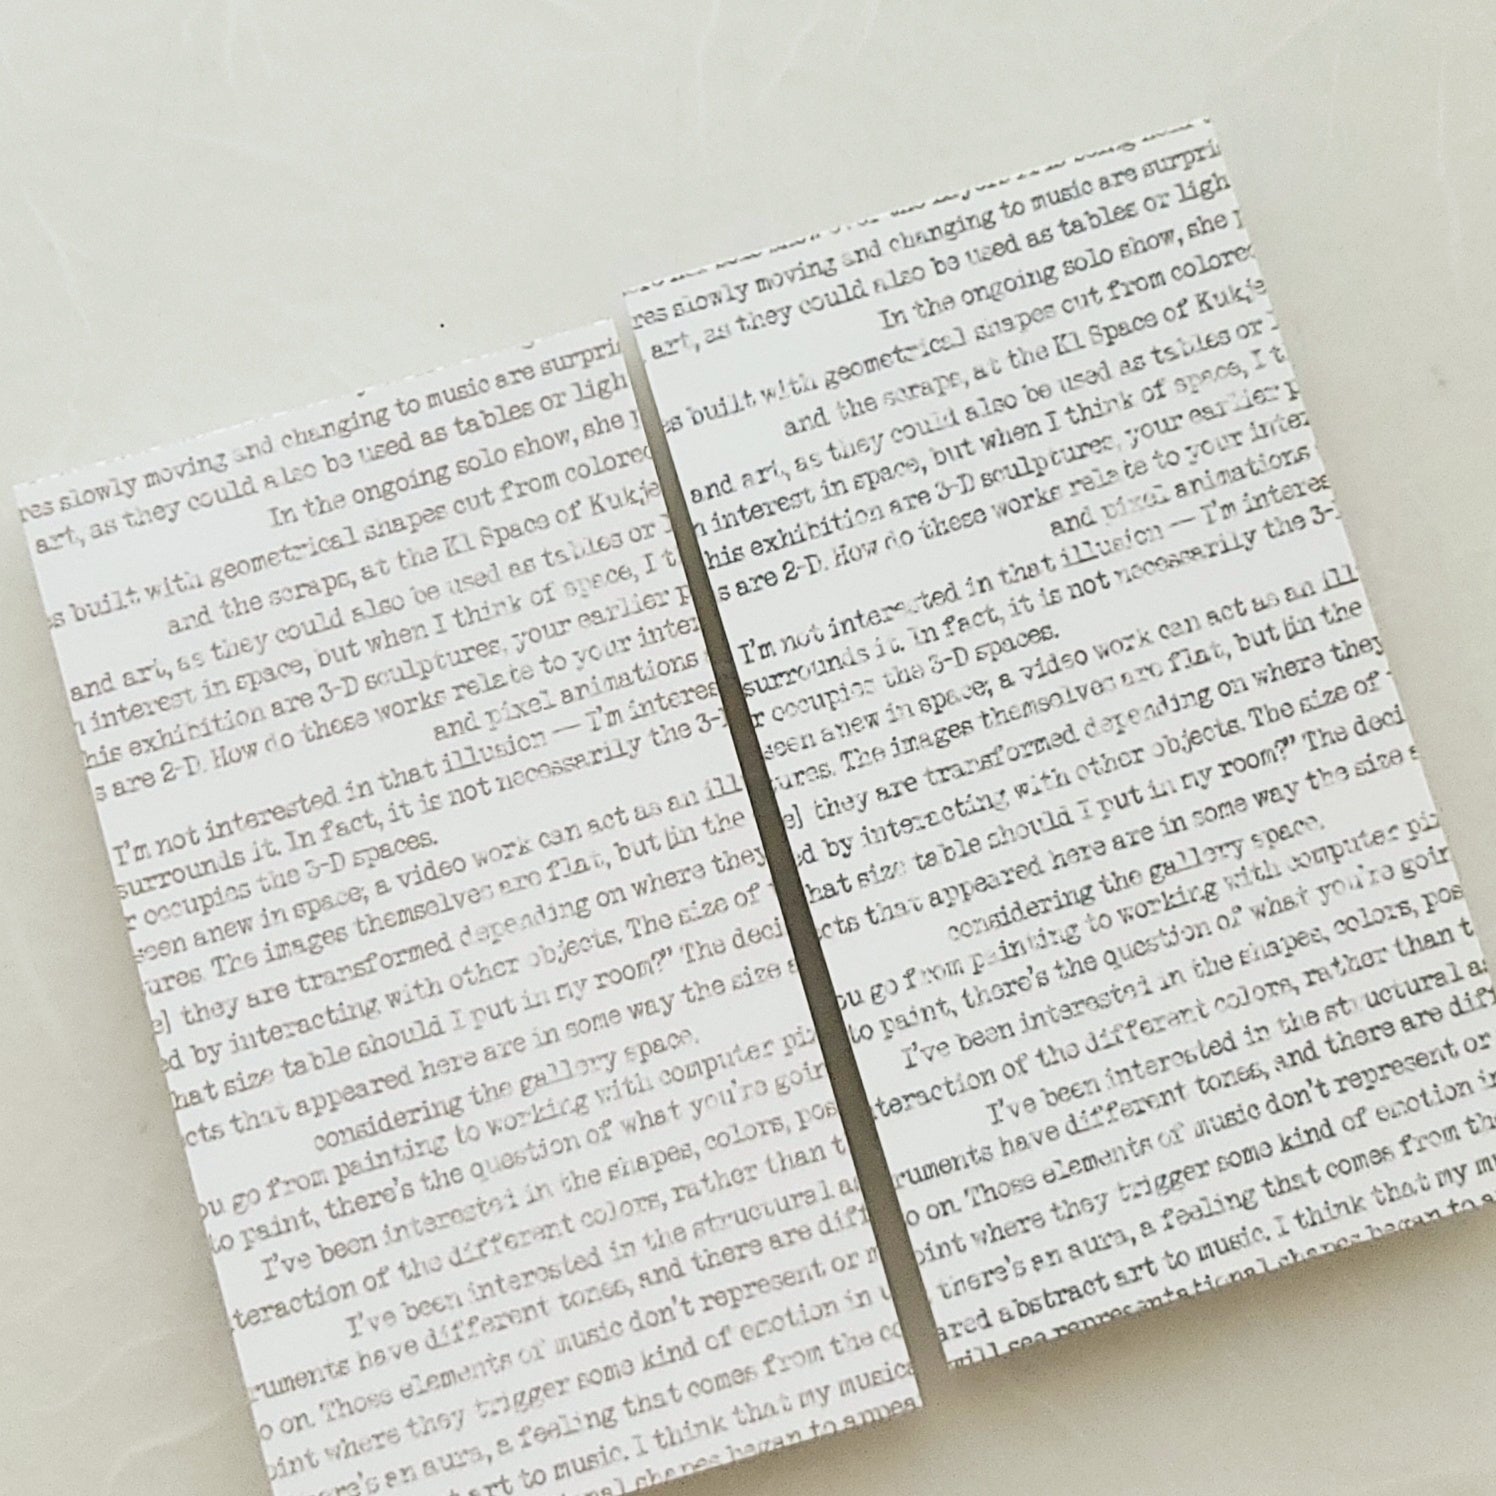 res slowly moving and changing to music are surpri
art, as they could also be used as tables or ligh
In the ongoing solo show, she
s built with geometrical shapes cut from colored
and the scraps, at the K1 Space of Kukje
and art, as they could also be used as tables or
interest in space, but when I think of space, I t
his exhibition are 3-D sculptures, your earlier p
s are 2-D. How do these works relate to your inter
and pixel animations
I'm not interested in that illusion — I'm interes
surrounds it. In fact, it is not necessarily the 3-
r occupies the 3-D spaces.
seen anew in space; a video work can act as an ill
ures. The images themselves are flat, but [in the
e] they are transformed depending on where they
ed by interacting with other objects. The size of
hat size table should I put in my room?" The deci
cts that appeared here are in some way the size a
considering the gallery space.
ou go from painting to working with computer pix
to paint, there's the question of what you're goin
I've been interested in the shapes, colors, pos
teraction of the different colors, rather than t
I've been interested in the structural as
ruments have different tones, and there are diff
o on. Those elements of music don't represent or m
oint where they trigger some kind of emotion in
there's an aura, a feeling that comes from the co
art to music. I think that my music
shapes began to appea
res slowly moving and changing to music are surpri
art, as they could also be used as tables or ligh
In the ongoing solo show, she
es built with geometrical shapes cut from colored
and the scraps, at the K1 Space of Kukje
and art, as they could also be used as tables or
n interest in space, but when I think of space, I t
his exhibition are 3-D sculptures, your earlier p
s are 2-D. How do these works relate to your inter
and pixel animations
I'm not interested in that illusion — I'm interes
surrounds it. In fact, it is not necessarily the 3-
r occupies the 3-D spaces.
seen anew in space; a video work can act as an ill
tures. The images themselves are flat, but [in the
e] they are transformed depending on where they
ed by interacting with other objects. The size of
hat size table should I put in my room?" The deci
cts that appeared here are in some way the size a
considering the gallery space.
ou go from painting to working with computer pix
to paint, there's the question of what you're goin
I've been interested in the shapes, colors, pos
teraction of the different colors, rather than t
I've been interested in the structural as
ruments have different tones, and there are diff
o on. Those elements of music don't represent or
oint where they trigger some kind of emotion in
there's an aura, a feeling that comes from the
ared abstract art to music. I think that my mu
will see representational shapes began to a